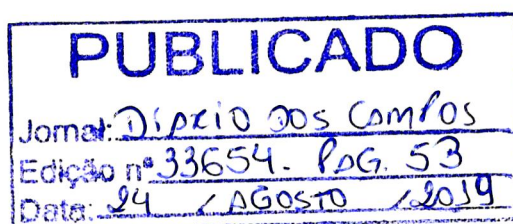 PUBLICADO
Jornal: Diário dos Campos
Edição nº 33654. PÁG. 53
Data: 24 / AGOSTO / 2019